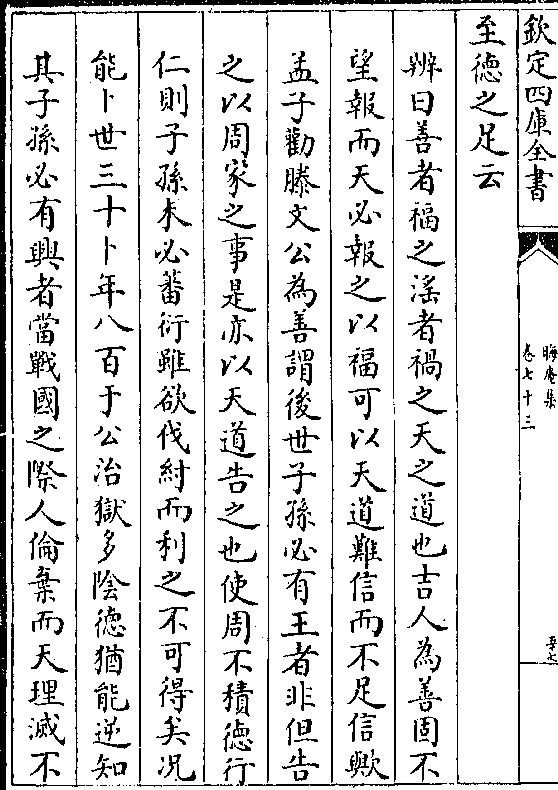 欽定四庫全書
晦庵集
卷七十三
至德之足云
辨曰善者福之淫者禍之天之道也吉人為善固不
望報而天必報之以福可以天道難信而不足信歟
孟子勸滕文公為善謂後世子孫必有王者非但告
之以周家之事是亦以天道告之也使周不積德行
仁則子孫未必蕃衍雖欲伐紂而利之不可得矣况
能卜世三十卜年八百于公治獄多陰德猶能逆知
其子孫必有興者當戰國之際人倫棄而天理滅不